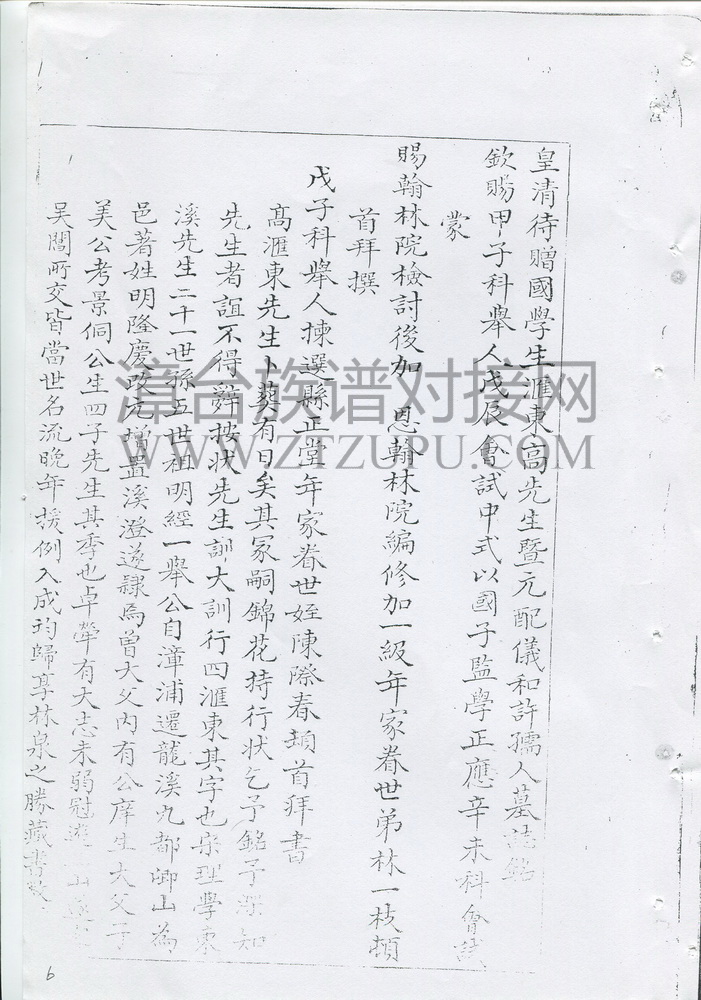 皇清待贈國學生滙東高先生暨元配儀和許孺人墓誌銘
欽賜甲子科舉人戊辰會試中式以國子監學正應辛未科會試
蒙
賜翰林院檢討後加 恩翰林院編修加一級年家眷世弟林一枝頓
首拜撰
戊子科舉人揀選縣正堂年家眷世姪陳際春頓首拜書
高滙東先生卜葬有日矣其冢嗣錦花持行状乞予銘予深知
先生者誼不得辤按状先生訓大訓行四滙東其字也宋理學東
溪先生二十一世孫五世祖明經一舉公自漳浦遷龍溪九都卿山為
邑著姓明隆慶改元增置溪澄遂隸焉曾大父内有公庠生大父子
美公考景侗公生四子先生其季也卓犖有大志未弱冠遊山
吳閶所交皆當世名流晚年援例入成均歸享林泉之勝藏書
6
漳台族谱对接网
WWW.ZTZUPU.COM